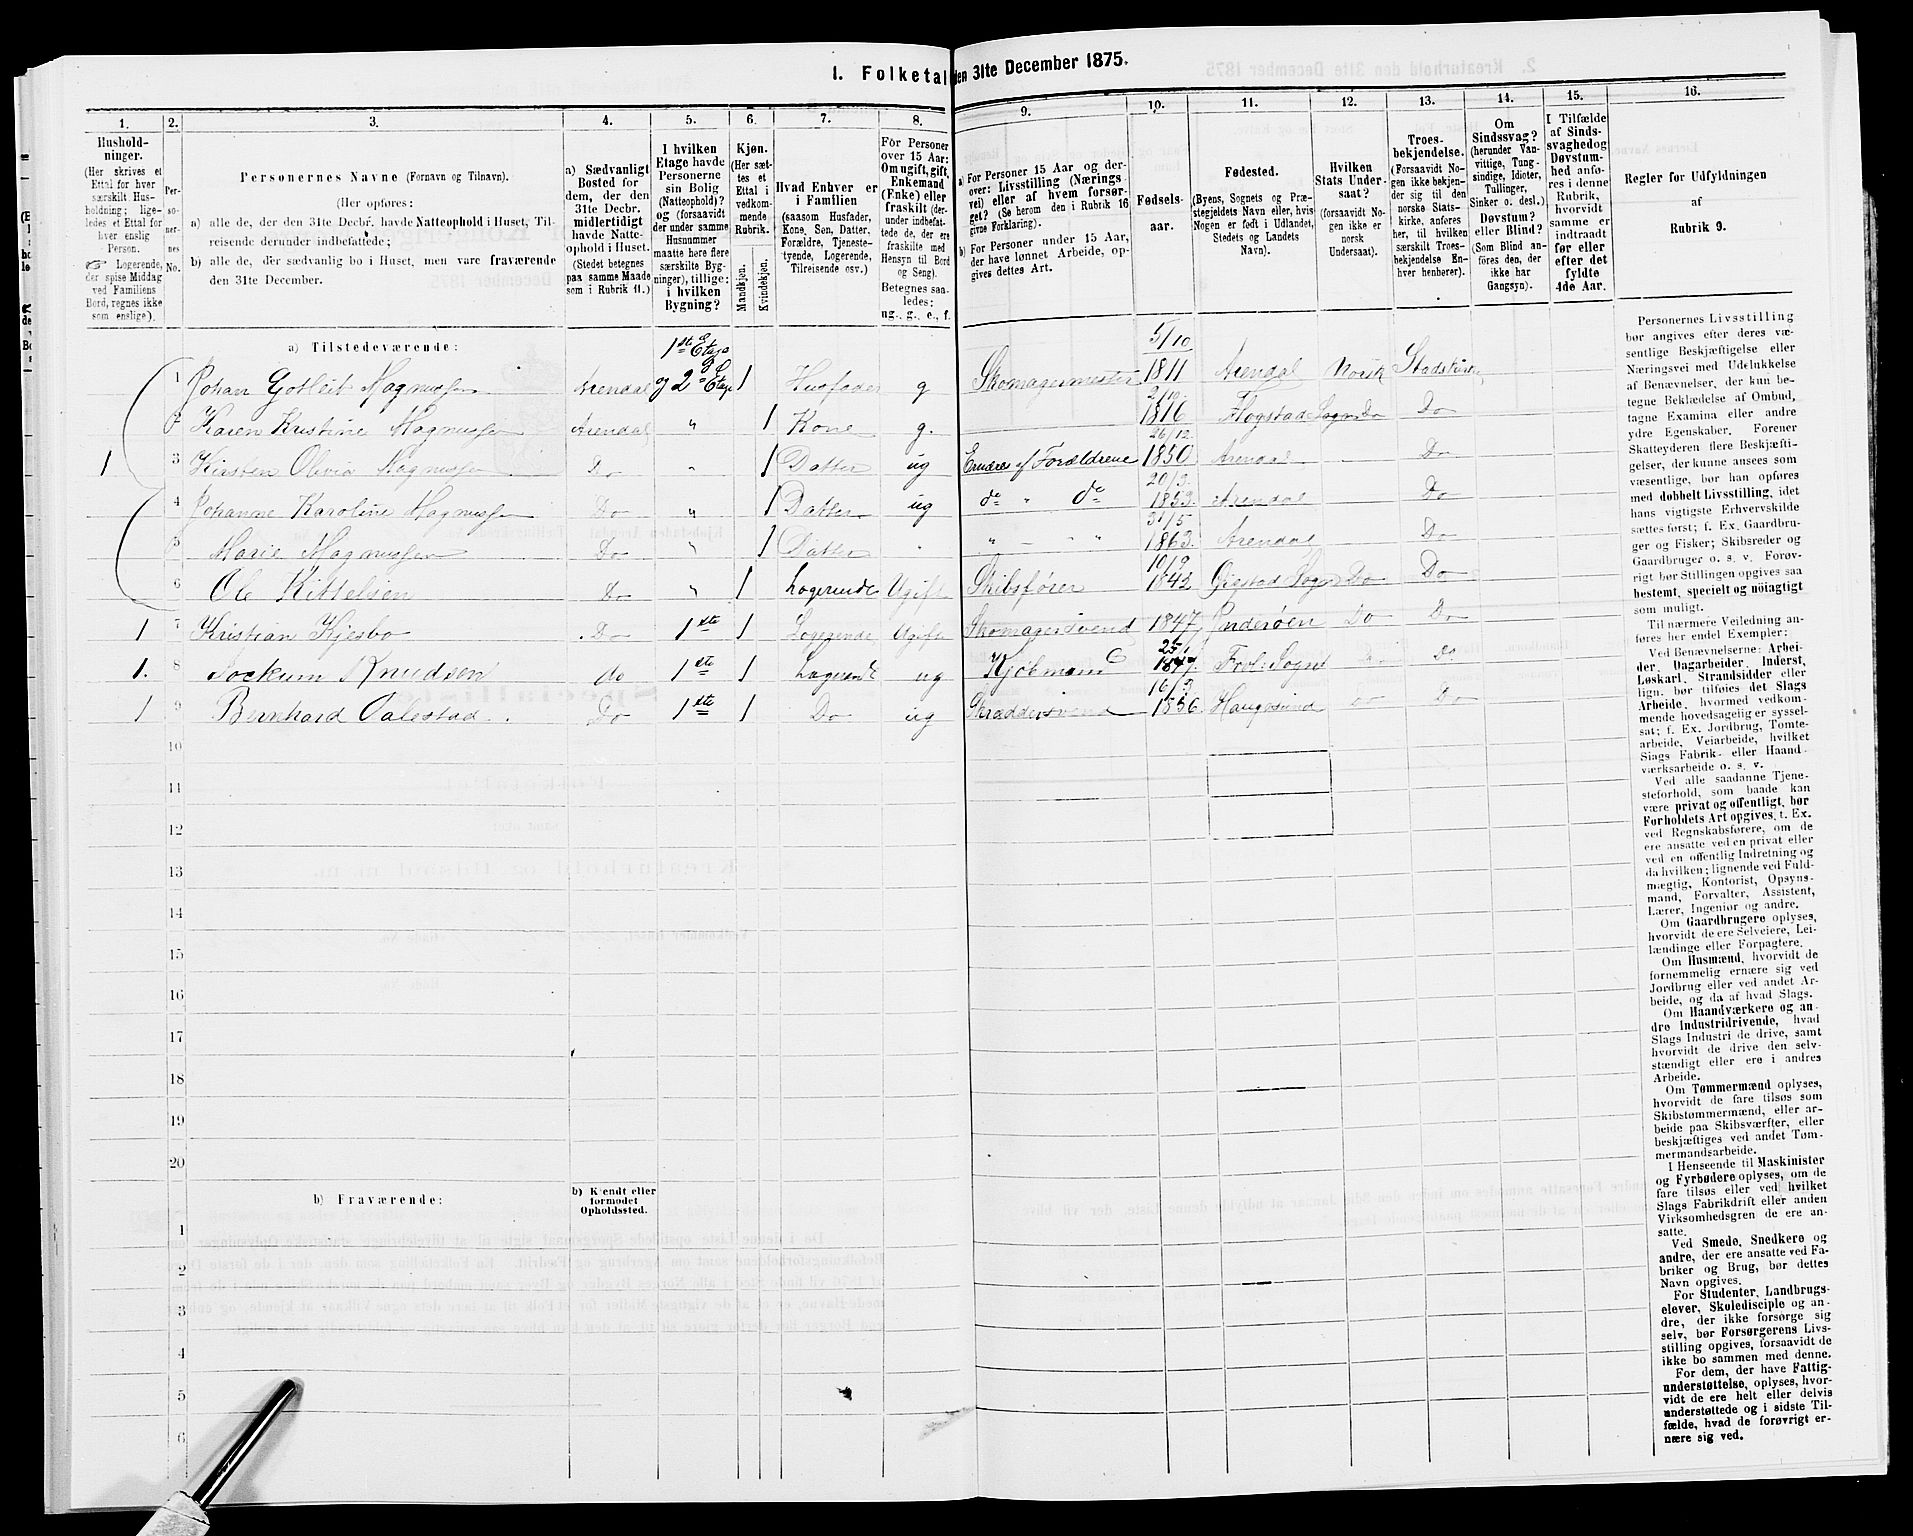 1. Folketal den 31te December 1875.
1. 2. 3. 4. 5. 6. 7. 8. 9. 10. 11. 12. 13. 14. 15. 16.
Hushold-
ninger.
(Her skrives et
Ettal for hver
særskilt Hus-
holdning; lige-
ledes et Ettal for
hver enslig
Person.
Logerende,
der spise Middag
ved Familiens
Bord, regnes ikke
som enslige).
Per-
so-
ner-
nes
No.
Personernes Navne (Fornavn og Tilnavn).
(Her opføres:
a) alle de, der den 31te Decbr. havde Natteophold i Huset, Til-
reisende derunder indbefattede;
b) alle de, der sædvanlig bo i Huset, men vare fraværende
den 31te December.
a) Sædvanligt
Bosted for
dem, der den
31te Decbr.
midlertidigt
havde Natte-
ophold i Huset.
(Stedet betegnes
paa samme Maade
som i Rubrik 11.)
I hvilken
Etage havde
Personerne
sin Bolig
(Natteophold)?
og (forsaavidt
der under samme
Husnummer
maatte høre flere
særskilte Byg-
ninger), tillige:
i hvilken
Bygning?
Kjøn.
(Her sæt-
tes et
Ettal i
vedkom-
mende
Rubrik.
Mandkjøn.
Kvindekjøn.
Hvad Enhver er
i Familien
(saasom Husfader,
Kone, Søn, Datter,
Forældre, Tjeneste-
tyende, Logerende,
Tilreisende osv.)
For Personer
over 15 Aar:
Om ugift, gift,
Enkemand
(Enke) eller
fraskilt (der-
under indbefat-
tede de, der ere
fraskilte med
Hensyn til Bord
og Seng).
Betegnes saa-
ledes:
ug., g., e., f.
a) For Personer 15 Aar og der-
over: Livsstilling (Nærings-
vei) eller af hvem forsør-
get? (Se herom den i Rubrik 16
givne Forklaring).
b) For Personer under 15 Aar,
der have lønnet Arbeide, op-
gives dettes Art.
Fødsels-
aar.
Fødested.
(Byens, Sognets og Præ-
stegjeldets Navn eller, hvis
Nogen er født i Udlandet,
Stedets og Landets
Navn).
Hvilken
Stats Under-
saat?
(forsaavidt No-
gen ikke er
norsk
Undersaat).
Troes-
bekjendelse.
(Forsaavidt No-
gen ikke bekjen-
der sig til den
norske Stats-
kirke, anføres
her, til hvilken
særskilt Troes-
bekjendelse En-
hver henhører).
Om
Sindssvag?
(herunder Van-
vittige, Tung-
sindige, Idioter,
Tullinger,
Sinker o. desl.).
Døvstum?
eller Blind?
(Som Blind an-
føres den, der
ikke har
Gangsyn).
I Tilfælde
af Sinds-
svaghed og
Døvstum-
hed anfø-
res i denne
Rubrik,
hvorvidt
samme er
indtraadt
før eller
efter det
fyldte
4de Aar.
Regler for Udfyldningen
af
Rubrik 9.
a) Tilstedeværende:
1 Johan Gotleit Magnussen Arendal 1ste Etage og 2 Etage 1 Husfader g Skomagermester 5/10 1811 Arendal Norsk
2 Karen Kristine Magnussen Arendal " 1 Kone g. 1816 Do Do
1 3 Kirsten Olivia Magnussen Do " 1 Datter ug Erndres af Forældrene 26/12 1850 Arendal Do
4 Johanne Karoline Magnussen Do " 1 Datter ug do " do 20/3 1853 Arendal Do
5 Marie Magnussen Do " 1 Datter " " " " 31/5 1863 Arendal Do
6 Ole Kittelsen Do " 1 Logerende Ugift Skibsfører 10/9 1842 Sogn Do Do
1 7 Kristian Kjesbo Do 1ste 1 Logerende Ugift Skomagersvend 1847 Inderøen Do Do
1. 8 Jockum Knudsen do 1ste 1 Logerende ug Kjøbmand Frol. Sogn Do Do
1 9 Bernhard Oalestad Do 1ste 1 Do ug Skræddersvend 16/3 1856 Haugesund Do Do
10
11
12
13
14
15
16
17
18
19
20
b) Fraværende:
b) Kjendt eller
formodet
Opholdssted.
1
2
3
4
5
6
Personernes Livsstilling
bør angives efter deres væ-
sentlige Beskjæftigelse eller
Næringsvei med Udelukkelse
af Benævnelser, der kun be-
tegne Beklædelse af Ombud,
tagne Examina eller andre
ydre Egenskaber. Forener
Skatteyderen flere Beskjæfti-
gelser, der kunne ansees som
væsentlige, bør han opføres
med dobbelt Livsstilling, idet
hans vigtigste Erhvervskilde
sættes først; f. Ex. Gaardbru-
ger og Fisker; Skibsreder og
Gaardbruger o. s. v. Forøv-
rigt bør Stillingen opgives saa
bestemt, specielt og nøiagtigt
som muligt.
Til nærmere Veiledning an-
føres her endel Exempler:
Ved Benævnelserne: Arbei-
der, Dagarbeider, Inderst,
Løskarl, Strandsidder eller
lign. bør tilføies det Slags
Arbeide, hvormed vedkom-
mende hovedsagelig er syssel-
sat; f. Ex. Jordbrug, Tomte-
arbeide, Veiarbeide, hvilket
Slags Fabrik- eller Haand-
værksarbeide o. s. v.
Ved alle saadanne Tjene-
steforhold, som baade kan
være privat og offentligt, bør
Forholdets Art opgives, t. Ex.
ved Regnskabsførere, om de
ere ansatte ved en privat eller
ved en offentlig Indretning og
da hvilken; lignende ved Fuld-
mægtig, Kontorist, Opsyns-
mand, Forvalter, Assistent,
Lærer, Ingeniør og andre.
Om Gaardbrugere oplyses,
hvorvidt de ere Selveiere, Lei-
lændinge eller Forpagtere.
Om Husmænd, hvorvidt de
fornemmelig ernære sig ved
Jordbrug eller ved andet Ar-
beide, og da af hvad Slags.
Om Haandværkere og an-
dre Industridrivende, hvad
Slags Industri de drive, samt
hvorvidt de drive den selv-
stændigt eller ere i andres
Arbeide.
Om Tømmermænd oplyses,
hvorvidt de fare tilsøs som
Skibstømmermænd, eller ar-
beide paa Skibsværfter, eller
beskjæftiges ved andet Tøm-
mermandsarbeide.
I Henseende til Maskinister
og Fyrbødere oplyses, om de
fare tilsøs eller ved hvilket
Slags Fabrikdrift eller anden
Virksomhedsgren de ere an-
satte.
Ved Smede, Snedkere og
andre, der ere ansatte ved Fa-
briker og Brug, bør dettes
Navn opgives.
For Studenter, Landbrugs-
elever, Skoledisciple og an-
dre, der ikke forsørge sig
selv, bør Forsørgerens Livs-
stilling opgives, forsaavidt de
ikke bo sammen med denne.
For dem, der have Fattig-
understøttelse, oplyses, hvor-
vidt de ere helt eller delvis
understøttede og i sidste Til-
fælde, hvad de forøvrigt er-
nære sig ved.